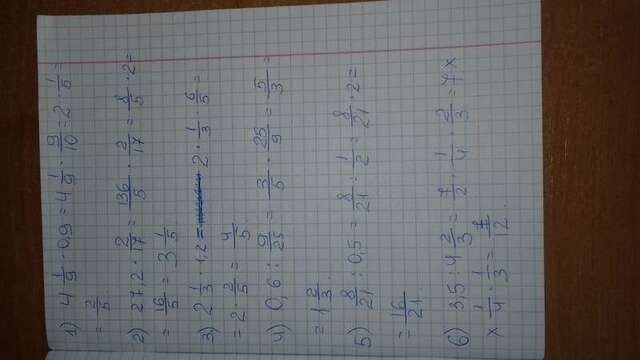 1) 4 1/9 · 0,9 = 4 1/9 · 9/10 = 2 · 1/5 =
= 2/5
2) 27,2 · 2/17 = 136/5 · 2/17 = 8/5 · 2 =
= 16/5 = 3 1/5
3) 2 1/3 · 1,2 = 2 · 1/3 · 6/5 =
= 2 · 2/5 = 4/5.
4) 0,6 : 9/25 = 3/5 · 25/9 = 5/3 =
= 1 2/3.
5) 8/21 : 0,5 = 8/21 : 1/2 = 8/21 · 2 =
= 16/21.
6) 3,5 : 4 2/3 = 7/2 · 1/4 · 2/3 = 7 ×
× 1/4 · 1/3 = 7/12.